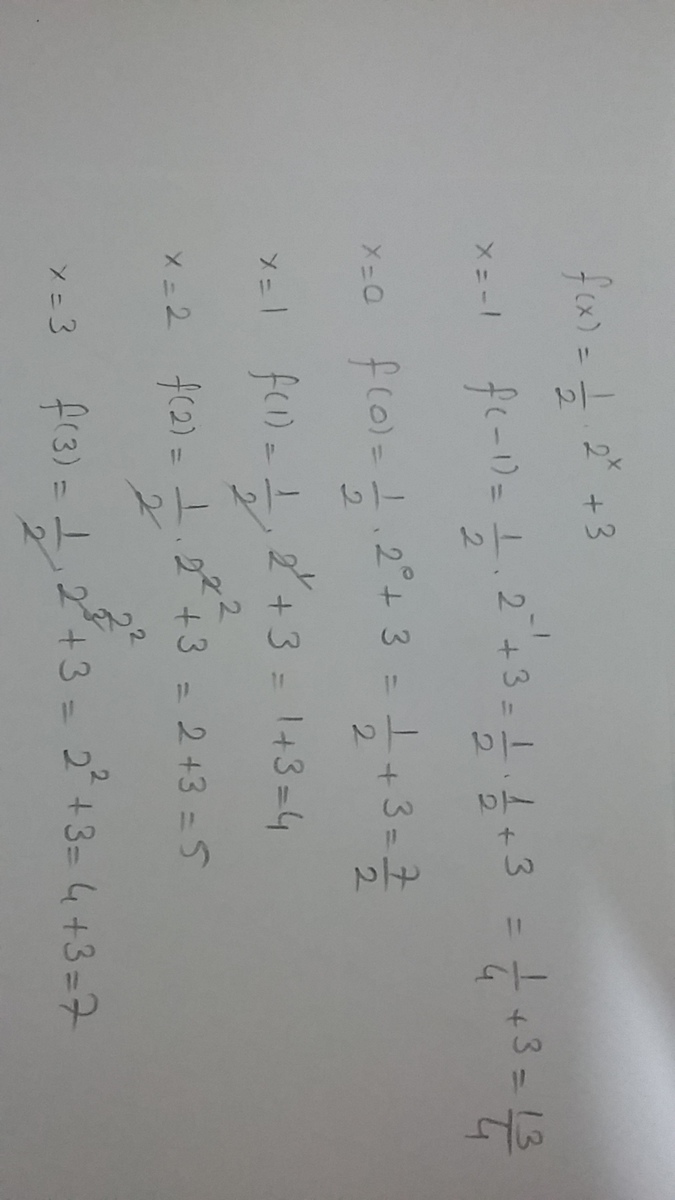 f(x) = 1/2 · 2^x + 3
x = -1 f(-1) = 1/2 · 2^-1 + 3 = 1/2 · 1/2 + 3 = 1/4 + 3 = 13/4
x = 0 f(0) = 1/2 · 2^0 + 3 = 1/2 + 3 = 7/2
x = 1 f(1) = 1/2 · 2^1 + 3 = 1 + 3 = 4
x = 2 f(2) = 1/2 · 2^2 2 + 3 = 2 + 3 = 5
x = 3 f(3) = 1/2 · 2^3 2^2 + 3 = 2^2 + 3 = 4 + 3 = 7